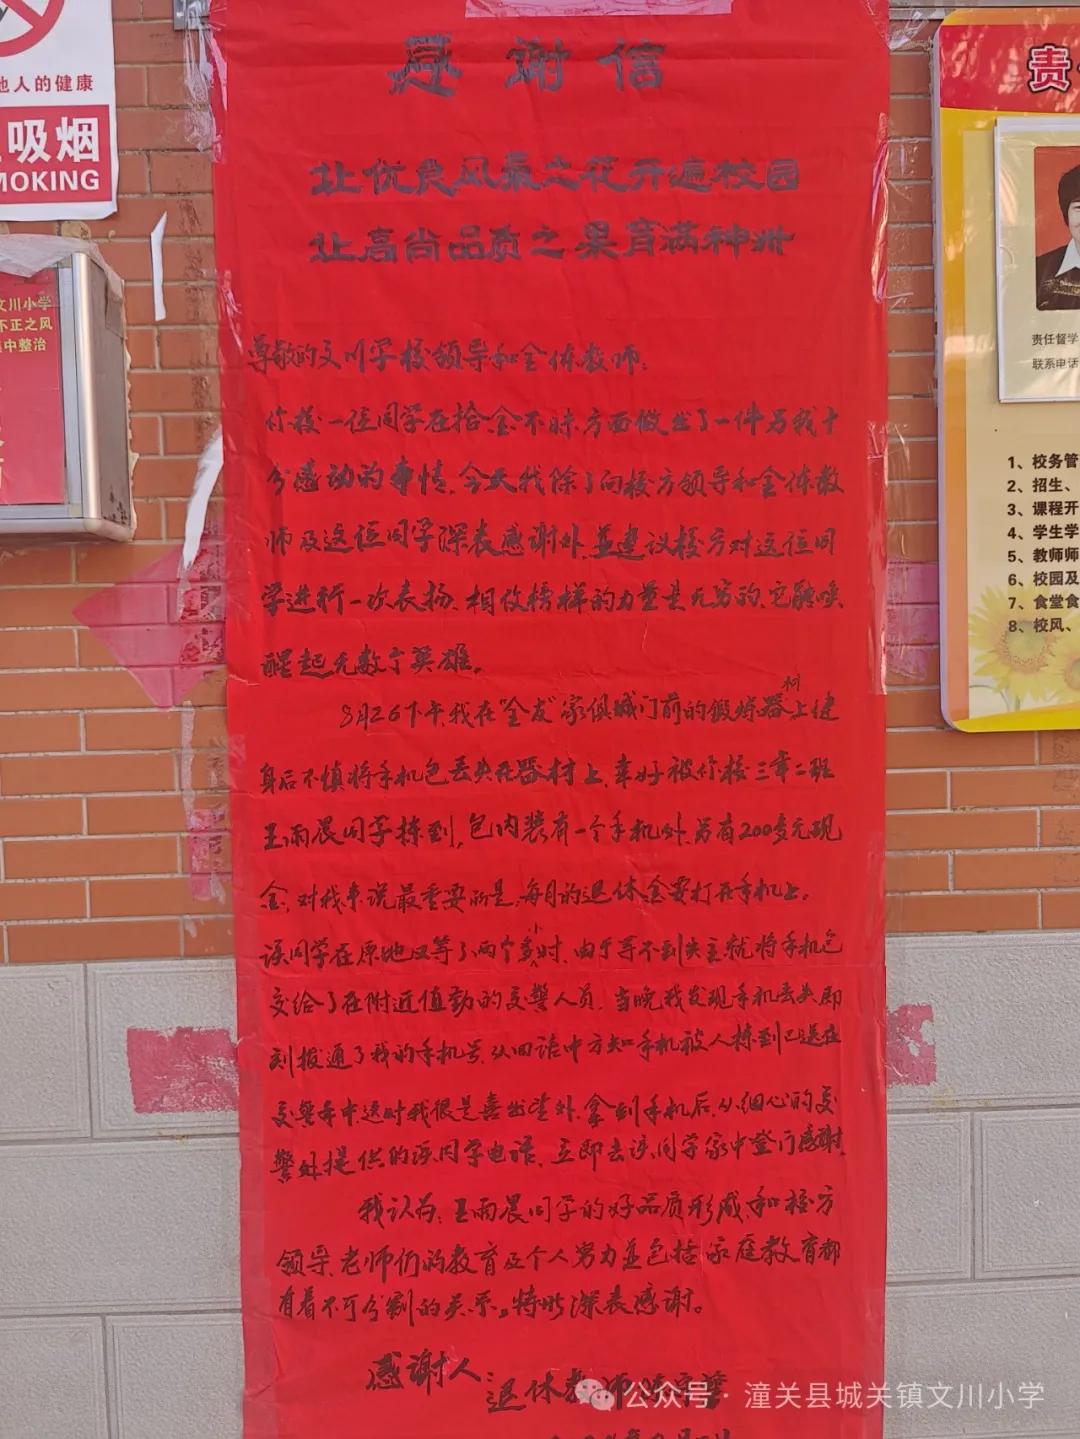 感谢信
让优良风气之花开遍校园
让高尚品质之果育满神州
尊敬的文川学校领导和全体教师:
你校一位同学在拾金不昧方面做出了一件另我十
分感动的事情。今天我除了向校方领导和全体教
师及这位同学深表感谢外,并建议校方对这位同
学进行一次表扬。相信榜样的力量是无穷的,它能唤
醒起无数个英雄。
8月26下午我在“全友”家俱城门前的锻炼器材上健
身后不慎将手机包丢失在器材上,幸好被你校三年二班
王雨晨同学拣到,包内装有一个手机外,另有200多元现
金,对我来说最重要的是,每月的退休金要打在手机上。
该同学在原地又等了两个多小时,由于等不到失主就将手机包
交给了在附近值勤的交警人员,当晚我发现手机丢失即
刻拨通了我的手机号,从回话中方知手机被人拣到已送在
交警手中,这时我很是喜出望外,拿到手机后,从细心的交
警处提供的该同学电话,立即去该同学家中登门感谢。
我认为:王雨晨同学的好品质形成,和校方
领导、老师们的教育及个人努力并包括家庭教育都
有着不可分割的关系。特此深表感谢。
感谢人:
退休教师
他人的健康
吸烟
MOKING
文川小学
不正之风
中整治
责
责任督学
联系电话
1、校务管
2、招生、
3、课程开
4、学生学
5、教师师
6、校园及
7、食堂食
8、校风、
公众号·潼关县城关镇文川小学